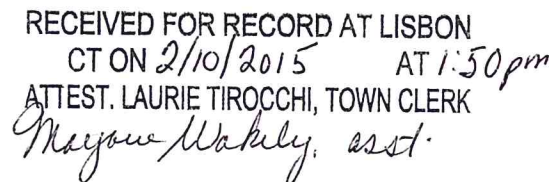 RECEIVED FOR RECORD AT LISBON
CT ON 2/10/2015 AT 1:50 pm
ATTEST. LAURIE TIROCCHI, TOWN CLERK
Marjorie Wakely, asst.